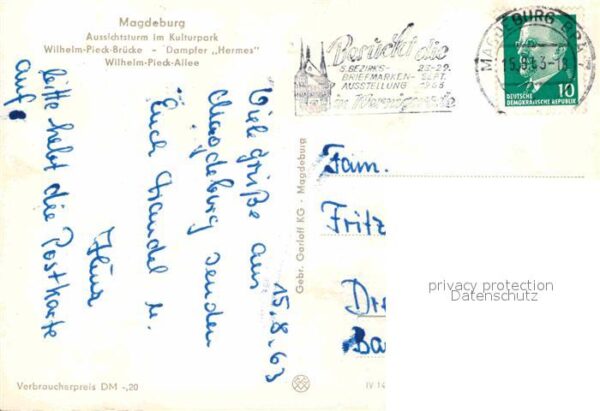 Magdeburg
Aussichtsturm im Kulturpark
Wilhelm-Pieck-Brücke - Dampfer „Hermes"
Wilhelm-Pieck-Allee
Besucht die
5. BEZIRKS-
BRIEFMARKEN-
AUSSTELLUNG
22-29.
SEPT.
1963
in Wernigerode
MAGDEBURG
15.8.63-18
DEUTSCHE
DEMOKRATISCHE REPUBLIK
10
15.8.63
Viele Grüße aus
Magdeburg senden
Euch
u.
bitte hebt die Postkarte
auf!
Gebr. Garloff KG · Magdeburg
Fam.
Fritz
Dr
Ba
privacy protection
Datenschutz
Verbraucherpreis DM -,20
IV 14